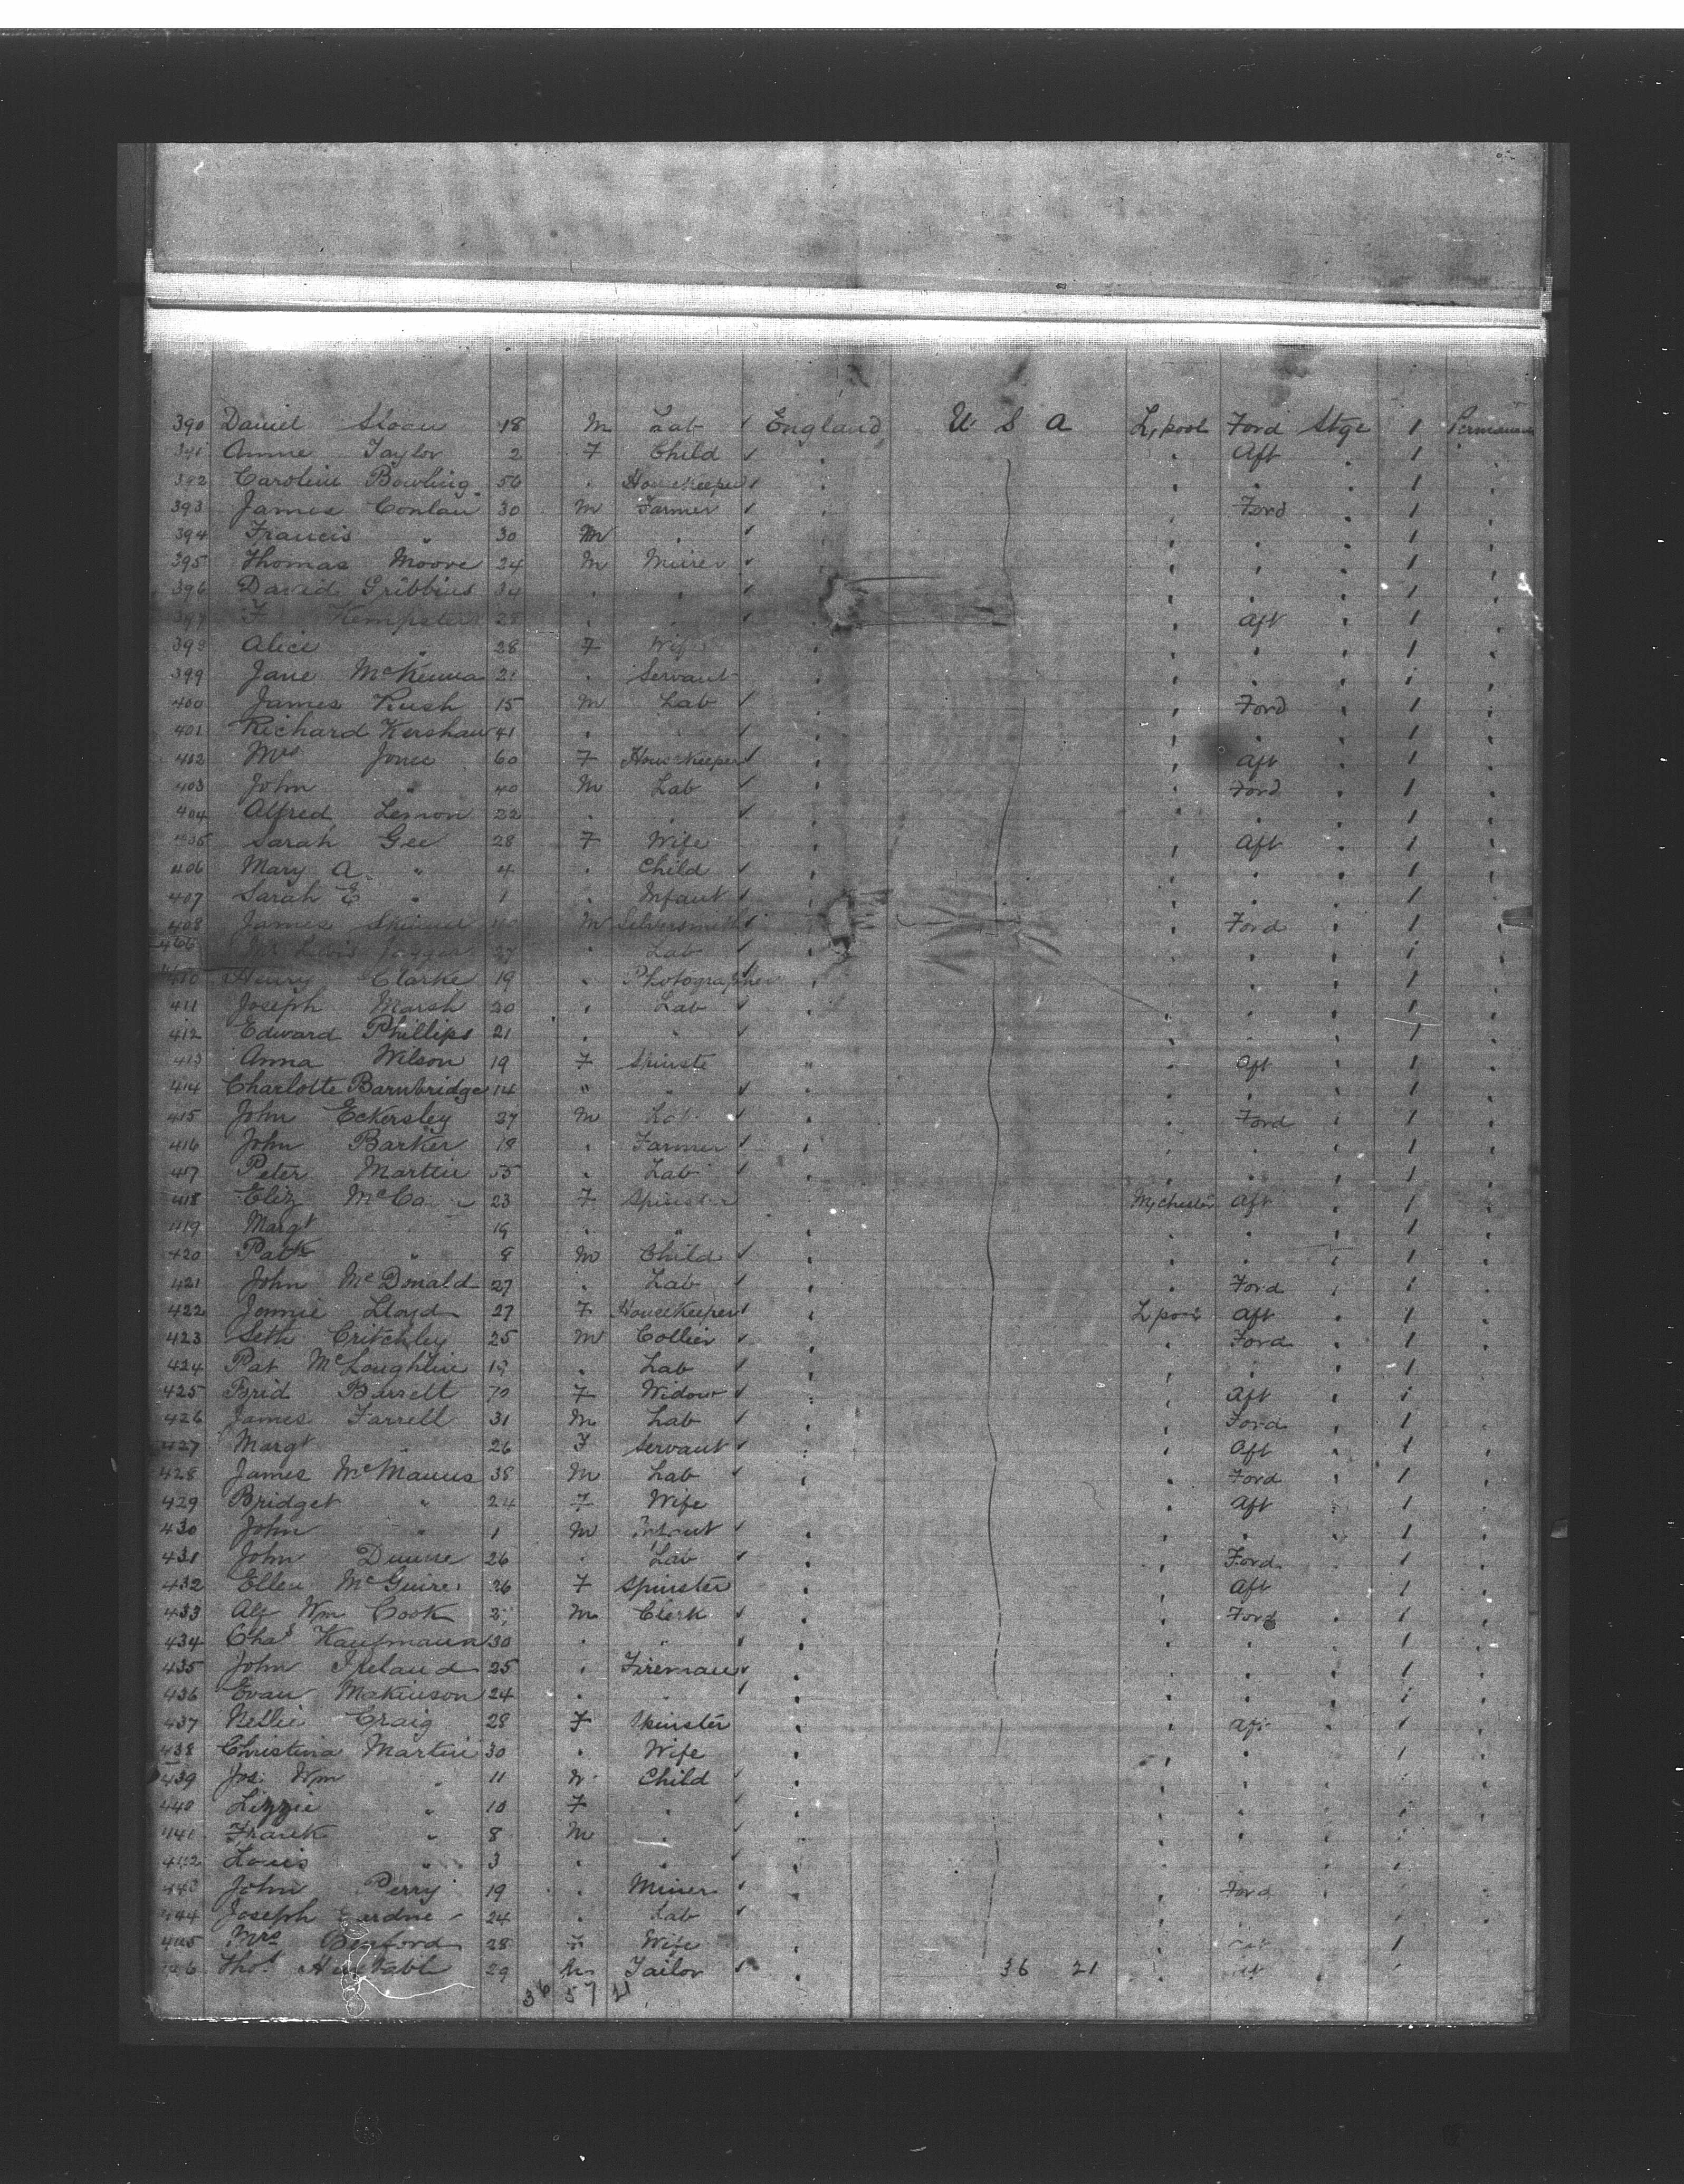 390 Daniel Sloan 18 M Lab ✓ England U S A L'pool Ford Stge 1 Permanent
391 Annie Taylor 2 F Child ✓ " " Aft " 1 "
392 Caroline Bowling 56 " Housekeeper ✓ " " " " 1 "
393 James Conlan 30 M Farmer ✓ " " Ford " 1 "
394 Francis " 30 M " ✓ " " " " 1 "
395 Thomas Moore 24 M Miner ✓ " " " " 1 "
396 David Gribbins 34 " " ✓ " " " 1 "
397 F Kempster 28 " " ✓ " Aft " 1 "
398 Alice " 28 F Wife " " " " 1 "
399 Jane McKenna 21 " Servant " " " " 1 "
400 James Rush 15 M Lab ✓ " " Ford " 1 "
401 Richard Kershaw 41 " " ✓ " " " " 1 "
402 Mrs Jones 60 F Housekeeper ✓ " " Aft " 1 "
403 John " 40 M Lab ✓ " " Ford " 1 "
404 Alfred Lemon 22 " " ✓ " " " " 1 "
405 Sarah Gee 28 F Wife " " Aft " 1 "
406 Mary A. " 4 " Child ✓ " " " " 1 "
407 Sarah E " 1 " Infant ✓ " " " " 1 "
408 James 40 M Silversmith ✓ " Ford " 1 "
Lewis Jaggar 27 " Lab ✓ " " " 1 "
410 Henry Clarke 19 " Photographer " " " " 1 "
411 Joseph Marsh 20 " Lab ✓ " " " " 1 "
412 Edward Phillips 21 " " ✓ " " " " 1 "
413 Anna Wilson 19 F Spinste " " Aft " 1 "
414 Charlotte Barnbridge 14 " " ✓ " " " " 1 "
415 John Eckersley 27 M Lab ✓ " " Ford " 1 "
416 John Barker 18 " Farmer ✓ " " " " 1 "
417 Peter Martin 55 " Lab ✓ " " " " 1 "
418 Eliz 23 F Spinster " M,chester Aft " 1 "
419 Margt 19 " " " " " " 1 "
420 Patk " 8 M Child ✓ " " " " 1 "
421 John McDonald 27 " Lab ✓ " " Ford " 1 "
422 Jennie Lloyd 27 F Housekeeper ✓ " L'pool Aft " 1 "
423 Seth Critchley 25 M Collier ✓ " " Ford " 1 "
424 Pat McLoughlin " Lab ✓ " " " " 1 "
425 Brid Barrett 70 F Widow ✓ " " Aft " 1 "
426 James Farrell 31 M Lab ✓ " " Ford " 1 "
427 Margt " 26 F Servant ✓ " " Aft " 1 "
428 James McManus 38 M Lab ✓ " " Ford " 1 "
429 Bridget " 24 F Wife " " Aft " 1 "
430 John " 1 M Infant ✓ " " " " 1 "
431 John Dunne 26 " Lab ✓ " " Ford " 1 "
432 Ellen McGuire 26 F Spinster " " Aft " 1 "
433 Alf Wm Cook M Clerk ✓ " " Ford " 1 "
434 Chas Kaufmann 30 " " ✓ " " " " 1 "
435 John Ireland 25 " Fireman ✓ " " " " 1 "
436 Evan Makinson 24 " " ✓ " " " " 1 "
437 Nellie Craig 28 F Spinster " " Aft " 1 "
438 Christina Martin 30 " Wife " " " " 1 "
439 Jos. Wm " 11 M Child ✓ " " " " 1 "
440 Lizzie " 10 F " ✓ " " " " 1 "
441 Frank " 8 M " ✓ " " " " 1 "
442 Louis " 3 " " ✓ " " " " 1 "
443 John Perry 19 " Miner ✓ " " Ford " 1 "
444 Joseph 24 " Lab ✓ " " " " 1 "
445 Mrs Benford 28 F Wife " " 1 "
446 Thos 29 M Tailor ✓ " 36 21 " " 1 "
36 57 21